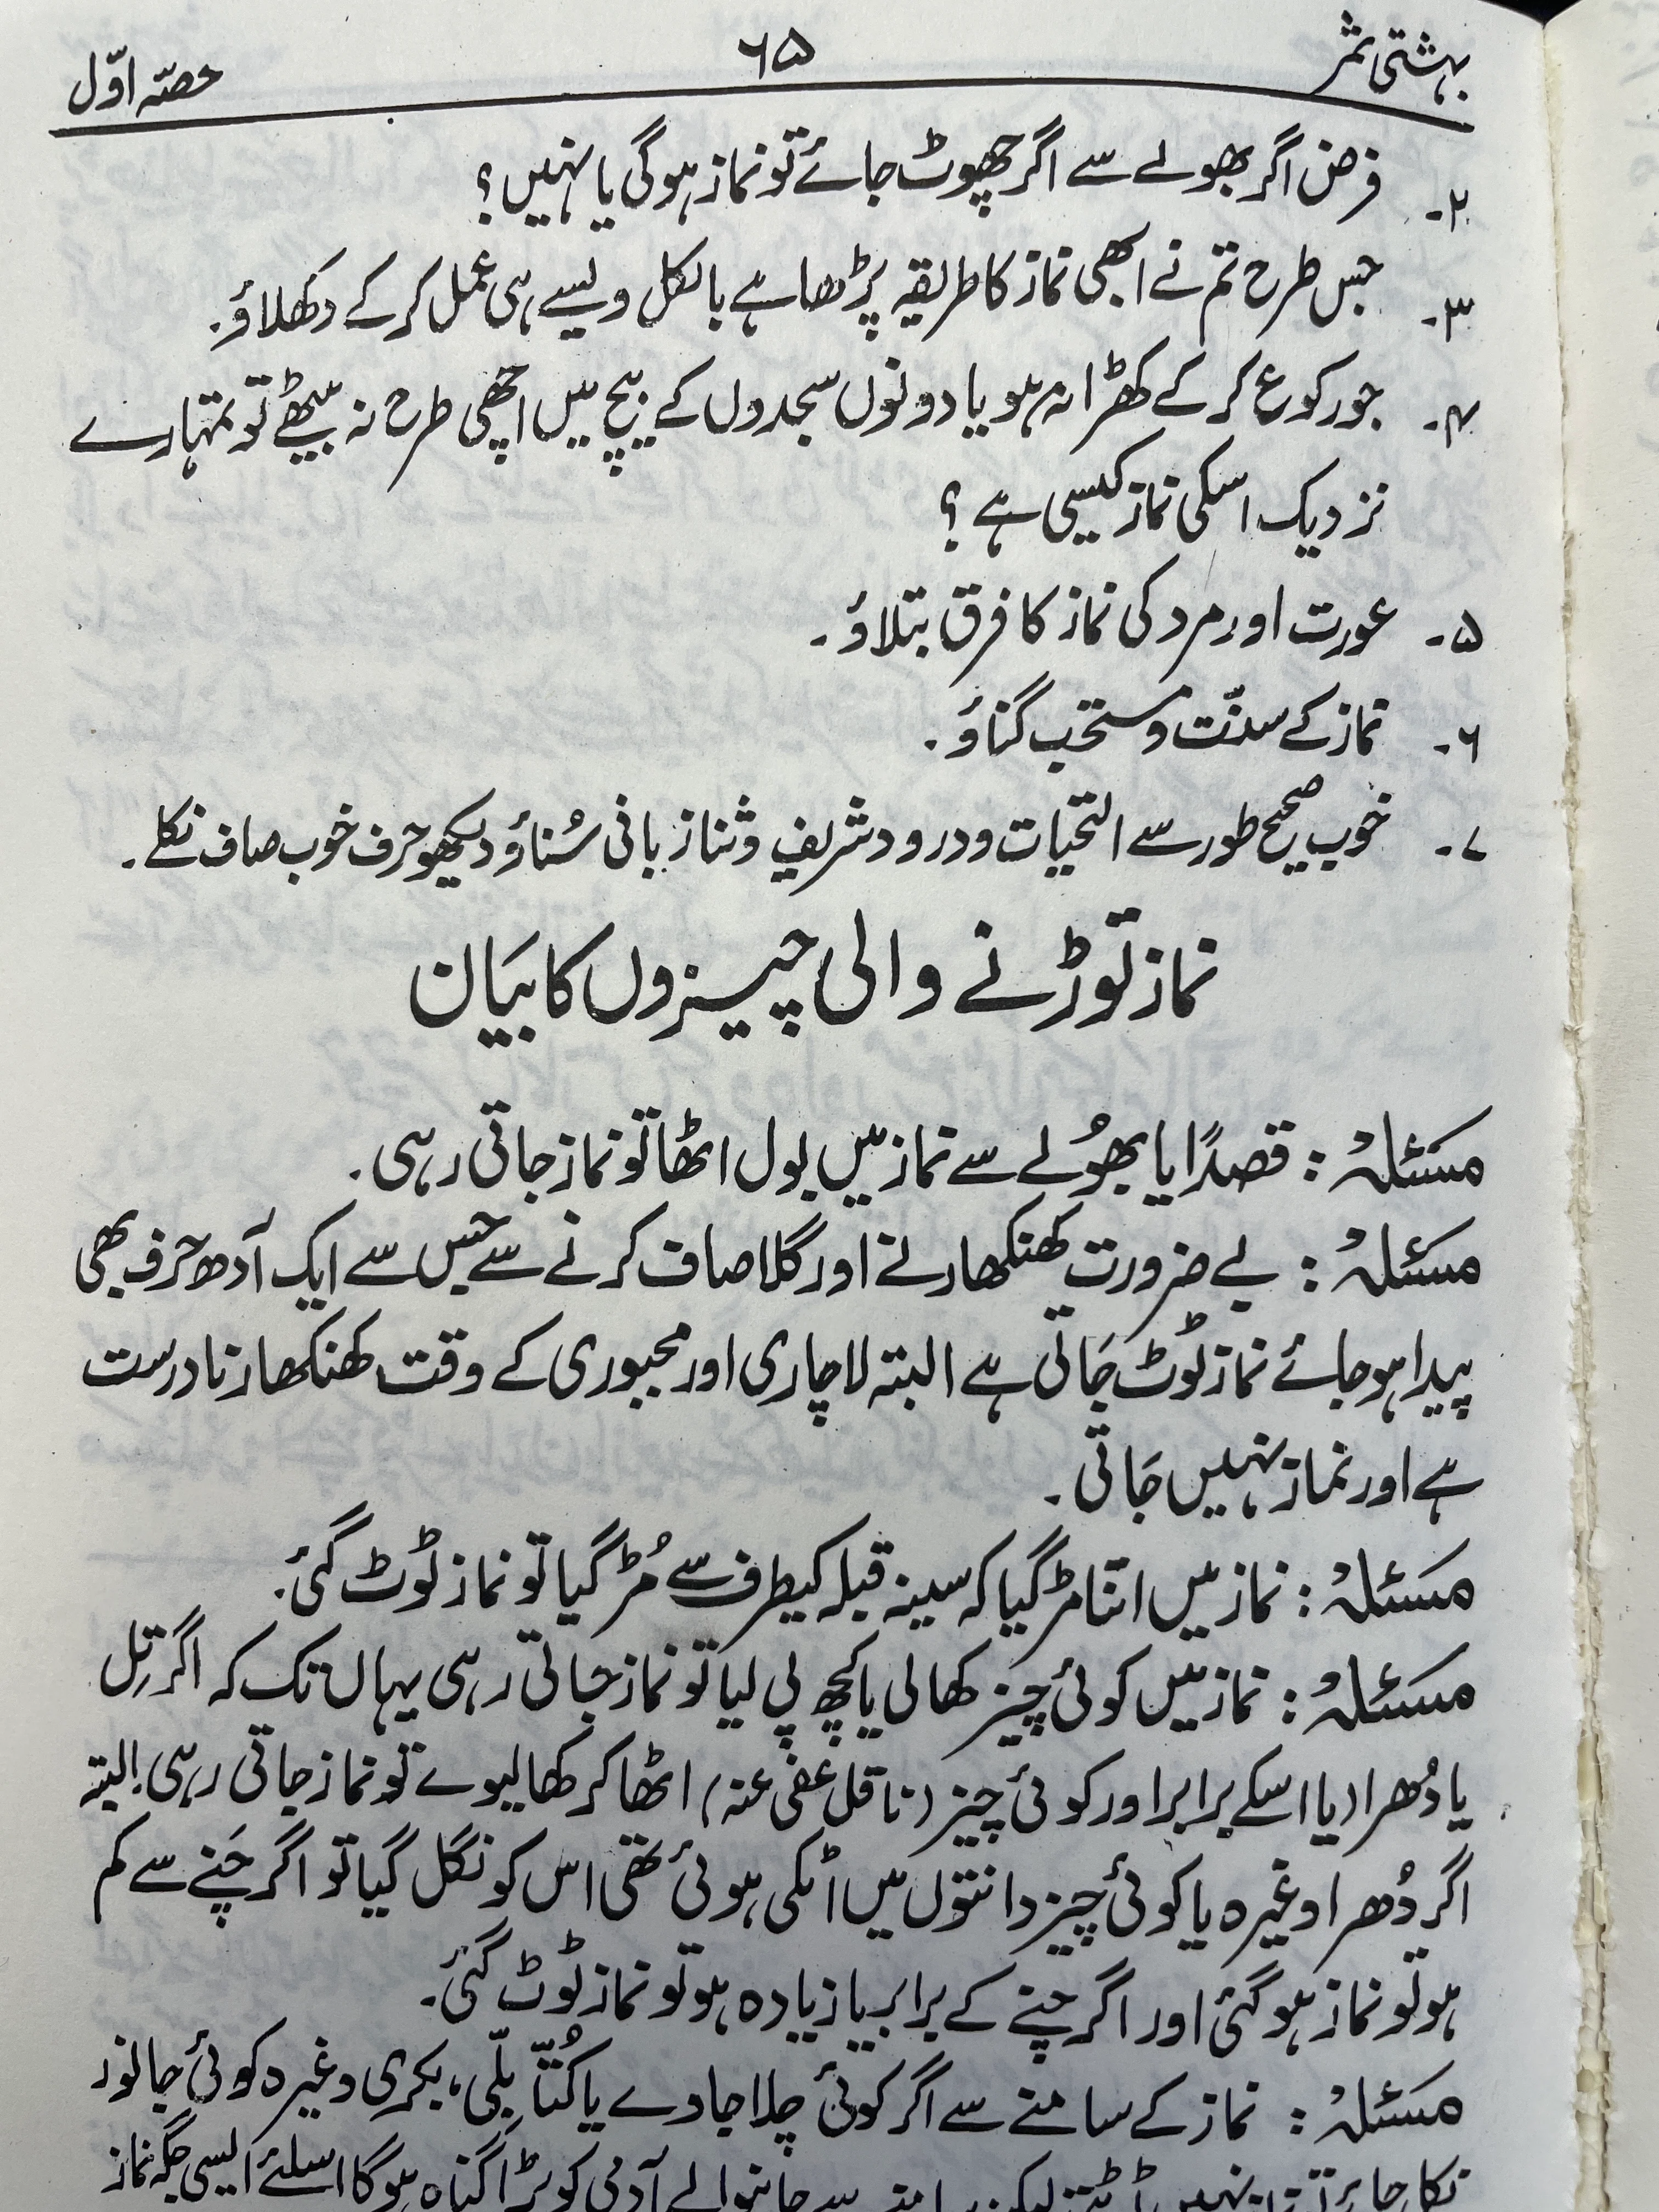 بہشتی ثمر ۶۵ حصّہ اوّل
۲- فرض اگر بھولے سے اگر چھوٹ جائے تو نماز ہوگی یا نہیں؟
۳- جس طرح تم نے ابھی نماز کا طریقہ پڑھا ہے بالکل ویسے ہی عمل کر کے دکھلاؤ۔
۴- جو رکوع کر کے کھڑا نہ ہو یا دونوں سجدوں کے بیچ میں اچھی طرح نہ بیٹھے تو تمہارے
نزدیک اسکی نماز کیسی ہے؟
۵- عورت اور مرد کی نماز کا فرق بتلاؤ۔
۶- نماز کے سنّت و مستحب گناؤ۔
۷- خوب صحیح طور سے التحیات و درود شریف و ثنا زبانی سُناؤ دیکھو حرف خوب صاف نکلے۔
نماز توڑنے والی چیزوں کا بیَان
مسَئلہُ : قصداً یا بھُولے سے نماز میں بول اٹھا تو نماز جاتی رہی۔
مسَئلہُ : بے ضرورت کھنکھارنے اور گلا صاف کرنے سے جس سے ایک آدھ حرف بھی
پیدا ہو جائے نماز ٹوٹ جَاتی ہے البتہ لاچاری اور مجبوری کے وقت کھنکھارنا درست
ہے اور نماز نہیں جَاتی۔
مسَئلہُ : نماز میں اتنا مڑ گیا کہ سینہ قبلہ کیطرف سے مُڑ گیا تو نماز ٹوٹ گئی۔
مسَئلہُ : نماز میں کوئی چیز کھالی یا کچھ پی لیا تو نماز جاتی رہی یہاں تک کہ اگر تِل
یا دُھرا (یا اسکے برابر اور کوئی چیز (ناقل عفی عنہ) اٹھا کر کھالیوے تو نماز جاتی رہی! البتہ
اگر دُھرا وغیرہ یا کوئی چیز دانتوں میں اٹکی ہوئی تھی اس کو نگل گیا تو اگر چَنے سے کم
ہو تو نماز ہوگئی اور اگر چنے کے برابر یا زیادہ ہو تو نماز ٹوٹ گئی۔
مسَئلہُ : نماز کے سامنے سے اگر کوئی چلا جاوے یا کُتّا بلّی، بکری وغیرہ کوئی جانور
آدمی کو بڑا گناہ ہوگا اسلئے ایسی جگہ نماز